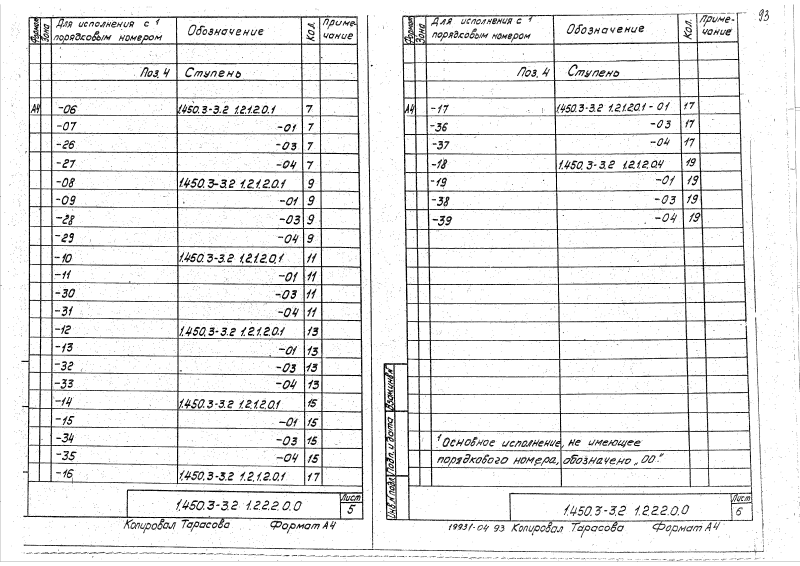 93
Формат Зона Для исполнения с ¹ порядковым номером Обозначение Кол. Примечание
Поз. 4 Ступень
А4 -06 1.450.3-3.2 1.2.1.2.0.1 7
-07 -01 7
-26 -03 7
-27 -04 7
-08 1.450.3-3.2 1.2.1.2.0.1 9
-09 -01 9
-28 -03 9
-29 -04 9
-10 1.450.3-3.2 1.2.1.2.0.1 11
-11 -01 11
-30 -03 11
-31 -04 11
-12 1.450.3-3.2 1.2.1.2.0.1 13
-13 -01 13
-32 -03 13
-33 -04 13
-14 1.450.3-3.2 1.2.1.2.0.1 15
-15 -01 15
-34 -03 15
-35 -04 15
-16 1.450.3-3.2 1.2.1.2.0.1 17
1.450.3-3.2 1.2.2.2.0.0 Лист 5
Копировал Тарасова Формат А4
Формат Зона Для исполнения с ¹ порядковым номером Обозначение Кол. Примечание
Поз. 4 Ступень
А4 -17 1.450.3-3.2 1.2.1.2.0.1-01 17
-36 -03 17
-37 -04 17
-18 1.450.3-3.2 1.2.1.2.0.4 19
-19 -01 19
-38 -03 19
-39 -04 19
¹ Основное исполнение, не имеющее
порядкового номера, обозначено „00."
Инв.№ подл. Подп. и дата Взам.инв.№
1.450.3-3.2 1.2.2.2.0.0 Лист 6
19931-04 93 Копировал Тарасова Формат А4